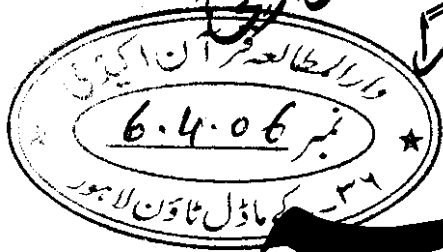 دارالمطالعہ قرآن اکیڈمی
نمبر 6.4.06
۳۶۔ کے ماڈل ٹاؤن لاہور